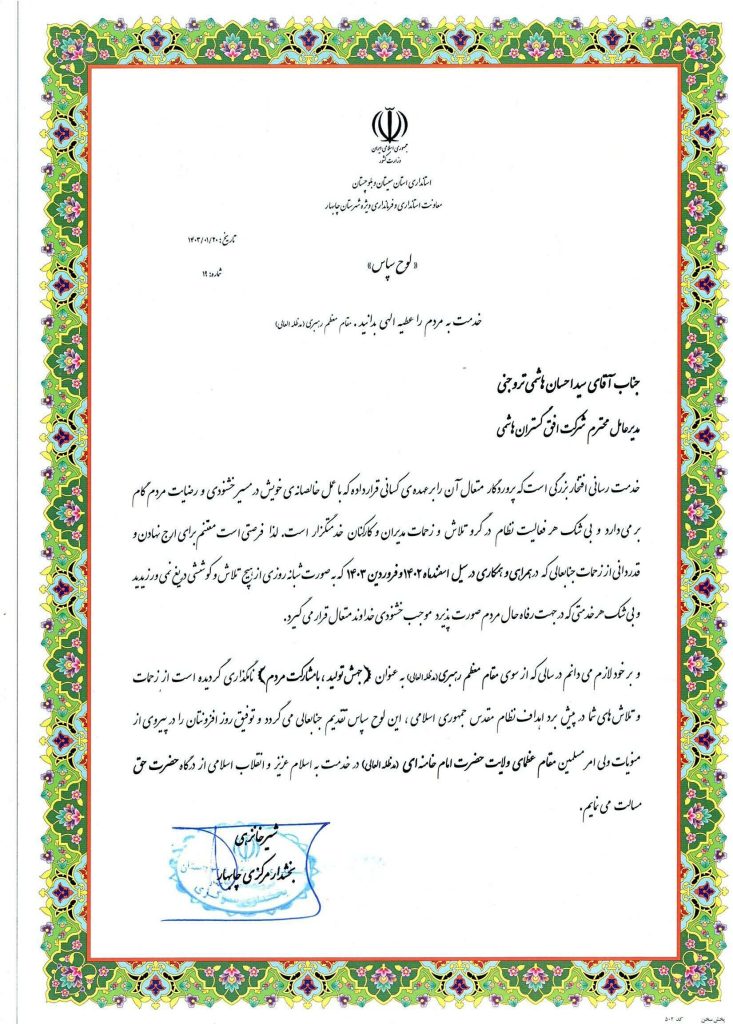 جمهوری اسلامی ایران
وزارت کشور
استانداری استان سیستان و بلوچستان
معاونت استانداری و فرمانداری ویژه شهرستان چابهار
تاریخ: ۱۴۰۳/۰۱/۲۰
شماره: ۱۹
«لوح سپاس»
خدمت به مردم را عطیه الهی بدانید. مقام معظم رهبری (مدظله العالی)
جناب آقای سید احسان هاشمی تروجنی
مدیرعامل محترم شرکت افق گستران هاشمی
خدمت رسانی افتخار بزرگی است که پروردگار متعال آن را بر عهده ی کسانی قرار داده که با عمل خالصانه ی خویش در مسیر خشنودی و رضایت مردم گام
بر می دارد و بی شک هر فعالیت نظام در گرو تلاش و زحمات مدیران و کارکنان خدمتگزار است. لذا فرصتی است مغتنم برای ارج نهادن و
قدردانی از زحمات جنابعالی که در همراهی و همکاری در سیل اسفندماه ۱۴۰۲ و فروردین ۱۴۰۳ که به صورت شبانه روزی از هیچ تلاش و کوششی دریغ نمی ورزیدید
و بی شک هر خدمتی که در جهت رفاه حال مردم صورت پذیرد موجب خشنودی خداوند متعال قرار می گیرد.
و بر خود لازم می دانم در سالی که از سوی مقام معظم رهبری (مدظله العالی) به عنوان (جهش تولید، با مشارکت مردم) نامگذاری گردیده است از زحمات
و تلاش های شما در پیش برد اهداف نظام مقدس جمهوری اسلامی، این لوح سپاس تقدیم جنابعالی می گردد و توفیق روز افزونتان را در پیروی از
منویات ولی امر مسلمین مقام عظمای ولایت حضرت امام خامنه ای (مدظله العالی) در خدمت به اسلام عزیز و انقلاب اسلامی از درگاه حضرت حق
مسالت می نمایم.
شیرخانزهی
بخشدار مرکزی چابهار
پخش سخن کد ۵۰۲